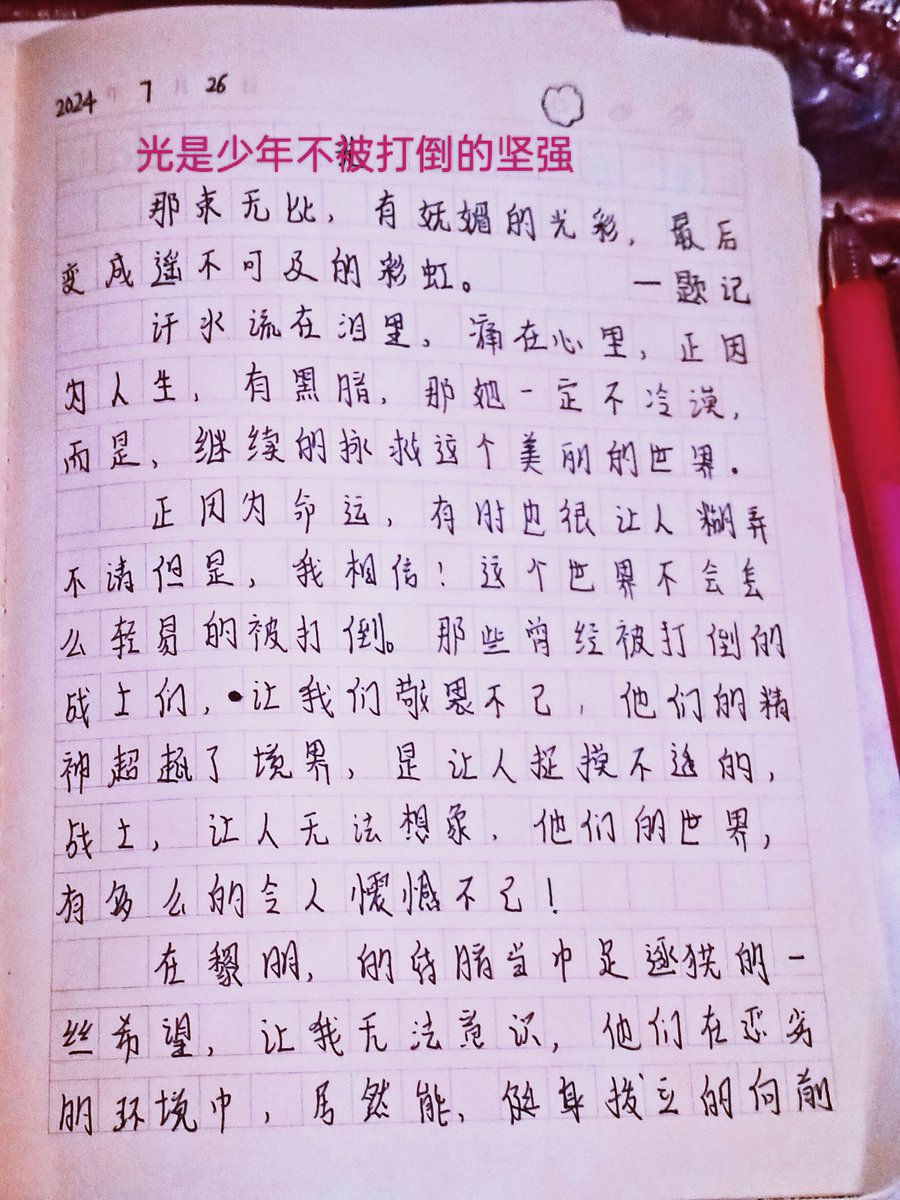 2024年7月26日
光是少年不被打倒的坚强
那束无比，有妩媚的光彩，最后
变成遥不可及的彩虹。 一题记
汗水流在泪里，痛在心里，正因
为人生，有黑暗，那她一定不冷漠，
而是，继续的拯救这个美丽的世界。
正因为命运，有时也很让人糊弄
不清但是，我相信！这个世界不会怎
么轻易的被打倒。那些曾经被打倒的
战士们，让我们敬畏不已，他们的精
神超越了境界，是让人捉摸不透的，
战士，让人无法想象，他们的世界，
有多么的令人憾不已！
在黎明，的转暗当中是逐的一
丝希望，让我无法意识，他们在恶劣
的环境中，居然能，挺身拔立的向前